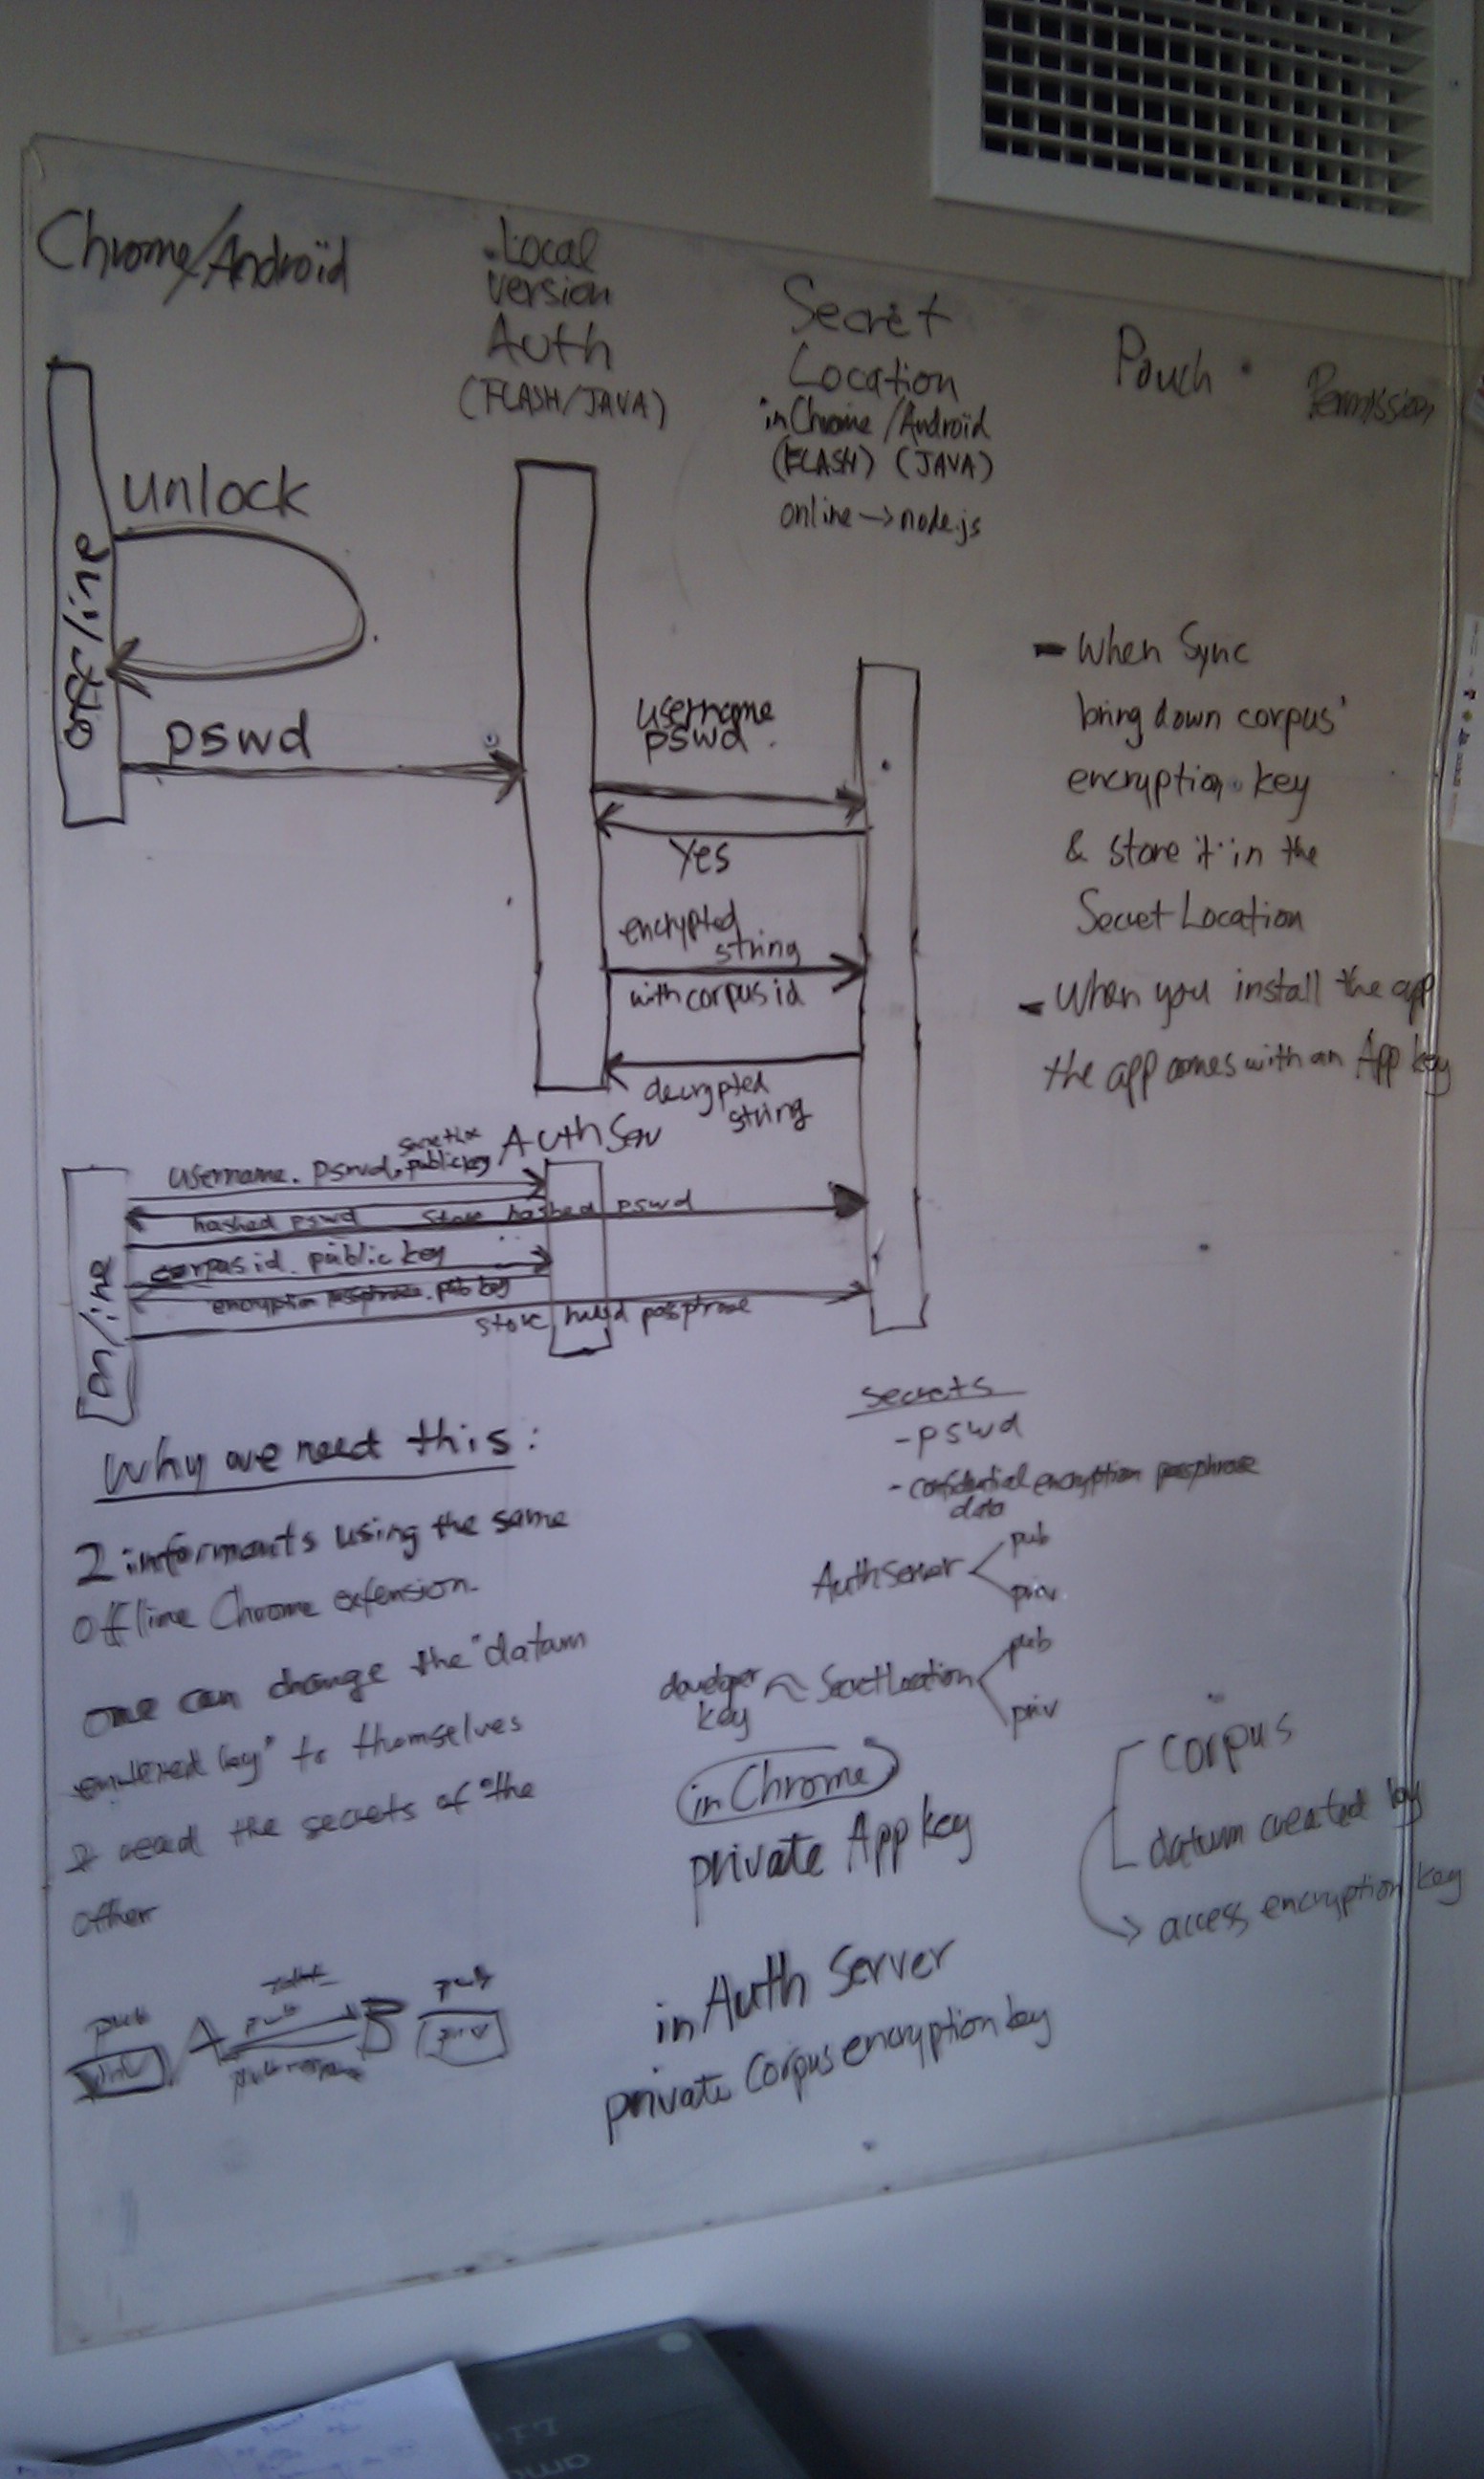 Chrome/Androïd
Local
version
Auth
(FLASH/JAVA)
Secret
Location
in Chrome/Androïd
(FLASH) (JAVA)
online → node.js
Pouch
Permission
offline
unlock
pswd
username
pswd
Yes
encrypted
string
with corpus id
decrypted
string
- When Sync
bring down corpus'
encryption key
& store it in the
Secret Location
- When you install the app
the app comes with an App key
Auth Serv
online
username. pswd. public key
hashed pswd
store hashed pswd
corpus id. public key
encryption passphrase. pub key
store passphrase
Why we need this:
2 informants using the same
offline Chrome extension.
one can change the "datum
key" to themselves
& read the secrets of the
other
secrets
- pswd
- confidential encryption passphrase
data
AuthServer
pub
priv
developer
key
≈ SecretLocation
pub
priv
in Chrome
private App key
in Auth Server
private Corpus encryption key
corpus
datum created by
access encryption key
pub
priv
A
pub
B
pub
priv